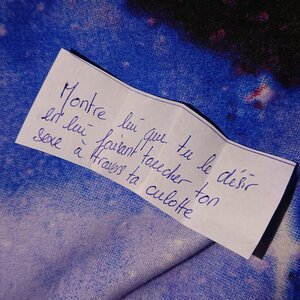 Montre lui que tu le désir
en lui faisant toucher ton
sexe à travers ta culotte